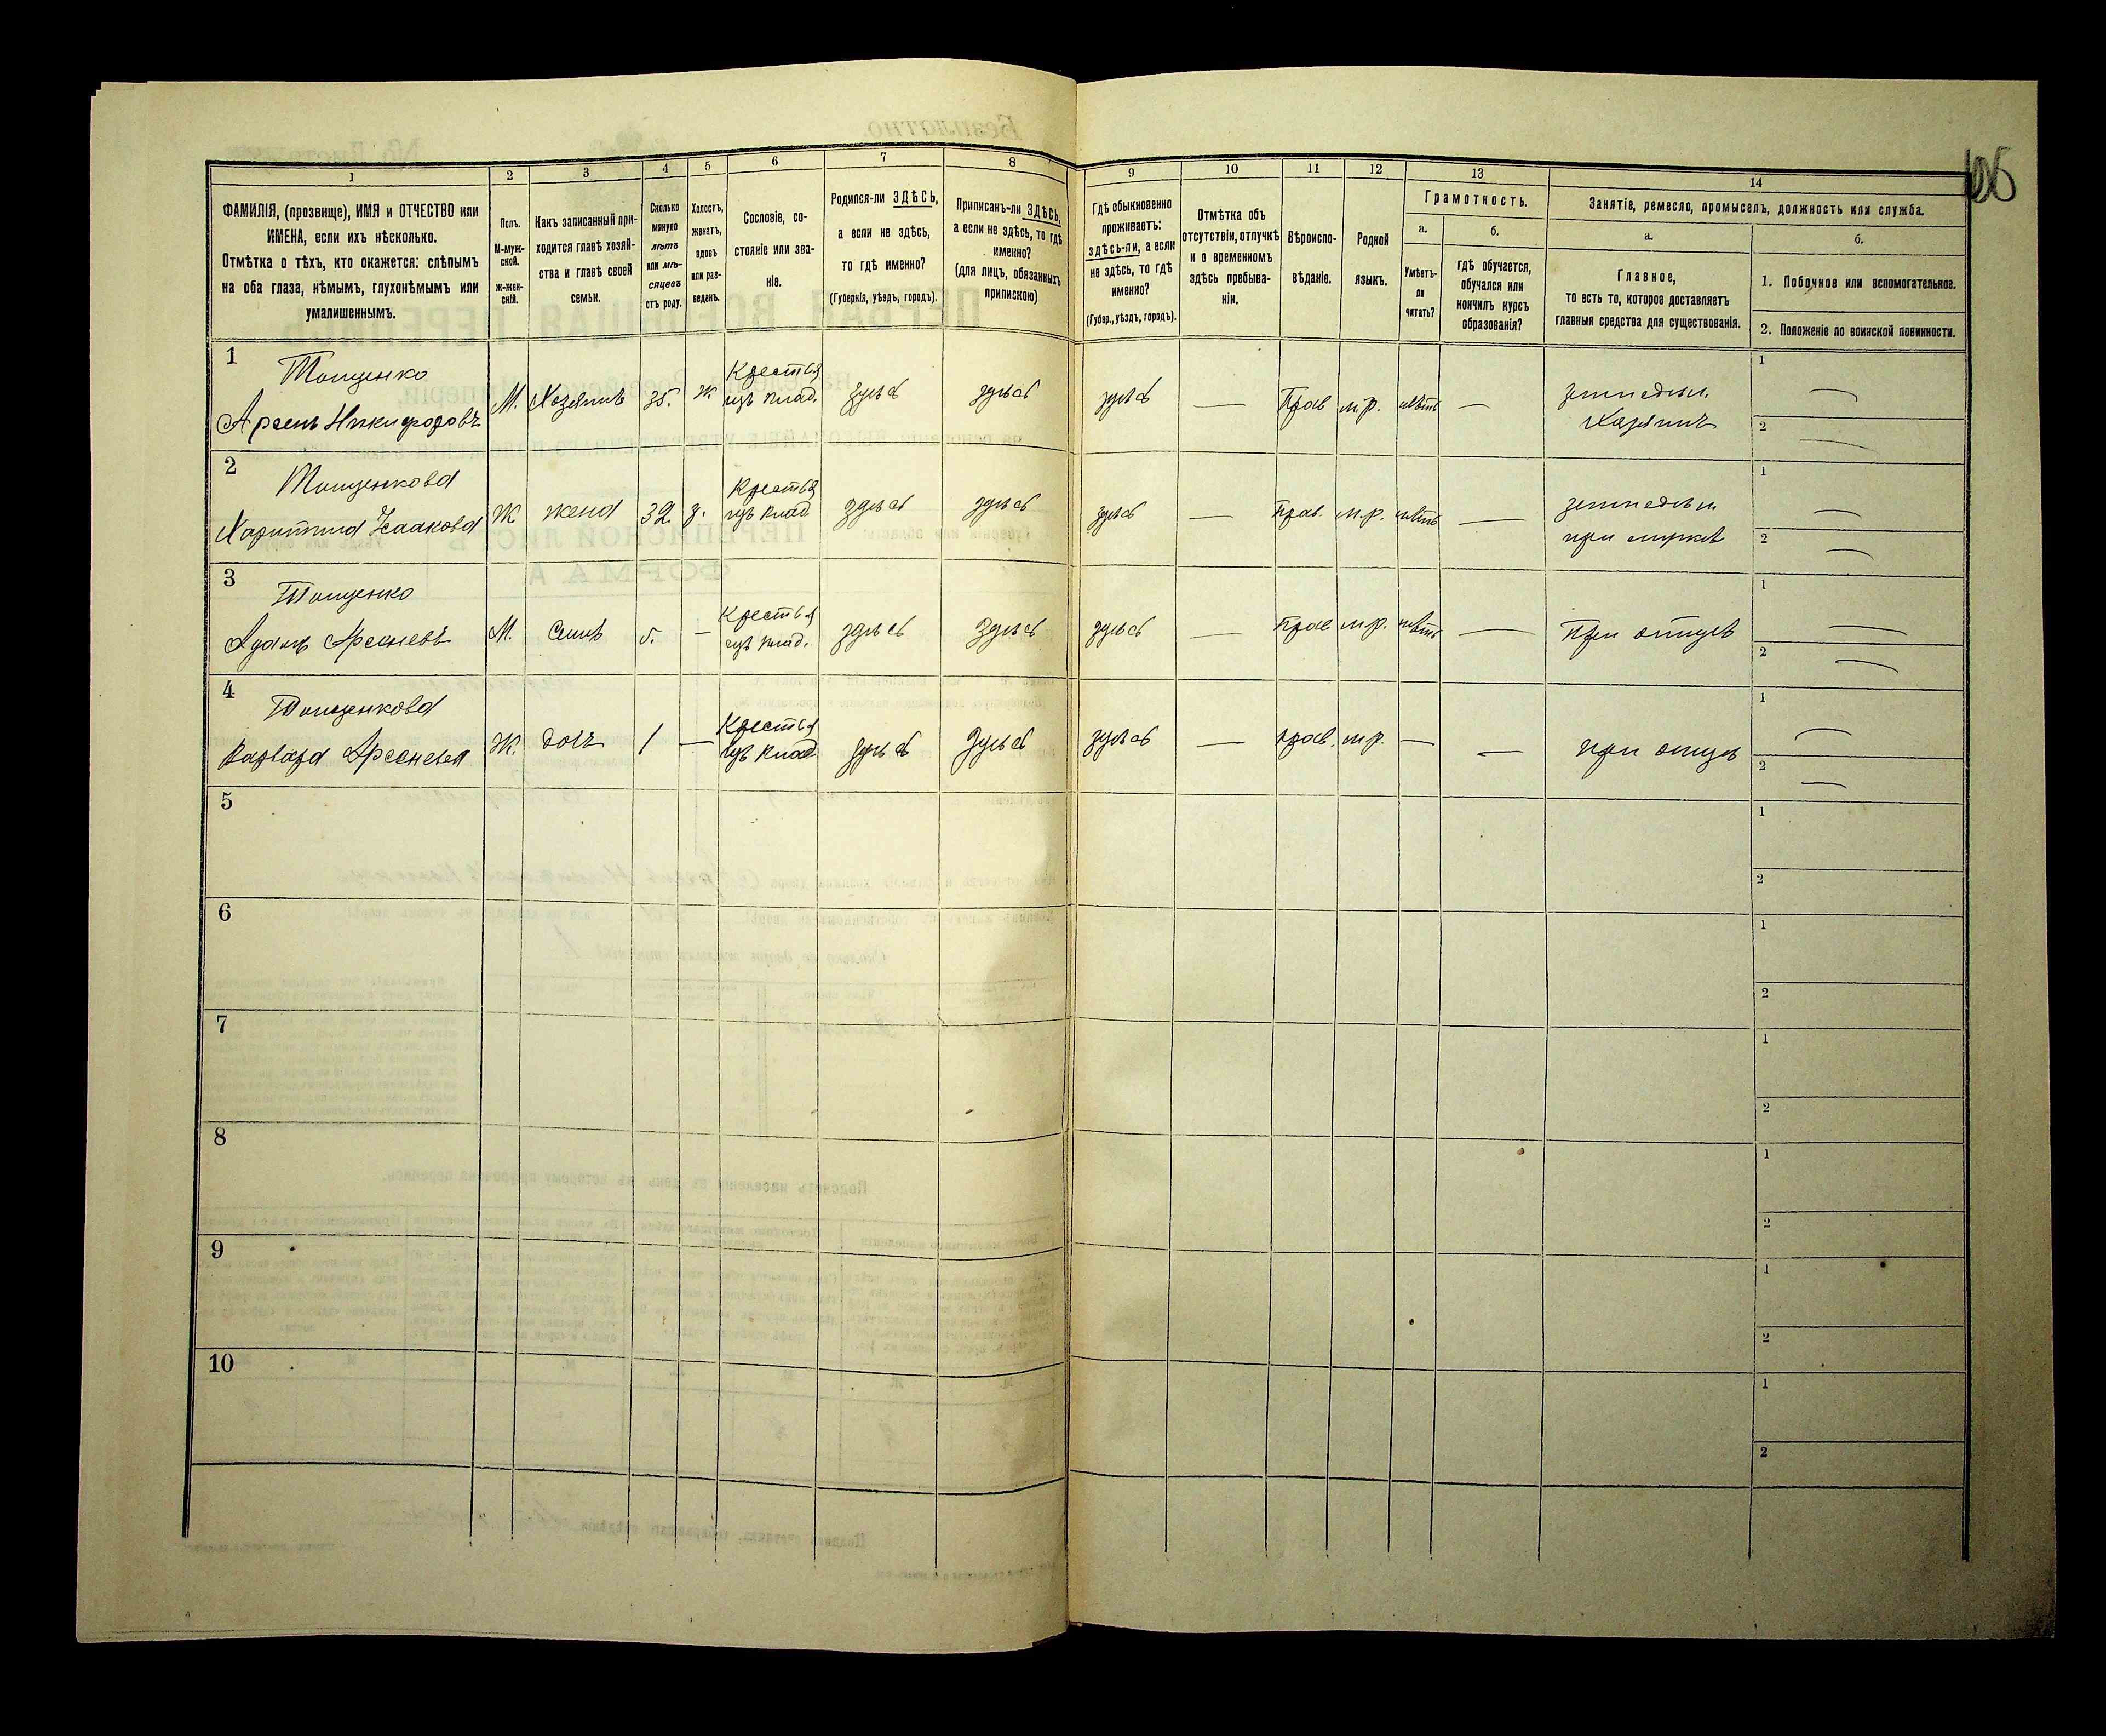 106
1 2 3 4 5 6 7 8 9 10 11 12 13 14
ФАМИЛІЯ, (прозвище), ИМЯ и ОТЧЕСТВО или
ИМЕНА, если ихъ нѣсколько.
Отмѣтка о тѣхъ, кто окажется: слѣпымъ
на оба глаза, нѣмымъ, глухонѣмымъ или
умалишеннымъ.
Полъ.
М-муж-
ской.
ж-жен-
скій.
Какъ записанный при-
ходится главѣ хозяй-
ства и главѣ своей
семьи.
Сколько
минуло
лѣтъ
или мѣ-
сяцевъ
отъ роду.
Холостъ,
женатъ,
вдовъ
или раз-
веденъ.
Сословіе, со-
стояніе или зва-
ніе.
Родился-ли ЗДѢСЬ,
а если не здѣсь,
то гдѣ именно?
(Губернія, уѣздъ, городъ).
Приписанъ-ли ЗДѢСЬ,
а если не здѣсь, то гдѣ
именно?
(для лицъ, обязанныхъ
припискою)
Гдѣ обыкновенно
проживаетъ:
здѣсь-ли, а если
не здѣсь, то гдѣ
именно?
(Губер., уѣздъ, городъ).
Отмѣтка объ
отсутствіи, отлучкѣ
и о временномъ
здѣсь пребыва-
ніи.
Вѣроиспо-
вѣданіе.
Родной
языкъ.
Грамотность.
а.
Умѣетъ-
ли
читать?
б.
гдѣ обучается,
обучался или
кончилъ курсъ
образованія?
Занятіе, ремесло, промыселъ, должность или служба.
а.
Главное,
то есть то, которое доставляетъ
главныя средства для существованія.
б.
1. Побочное или вспомогательное.
2. Положеніе по воинской повинности.
1 Тощенко
Арсень Никифоровъ
М. Хозяинъ 35. ж. Крестья изъ влад. здѣсь здѣсь здѣсь — Прав м.р. нѣтъ —
Хозяинъ
1 —
2 —
2 Тощенкова
Харитина Исаакова
Ж жена 32 з. Крестья изъ влад здѣсь здѣсь здѣсь — Прав. м.р. нѣтъ —
при мужѣ
1 —
2 —
3 Тощенко
Арсеневъ
М. Сынъ 5. — Крестья изъ влад. здѣсь здѣсь здѣсь — Прав м.р. нѣтъ —
При отцѣ
1 —
2 —
4 Тощенкова
Варвара Арсенева
Ж. дочь 1 — Крестья изъ влад здѣсь здѣсь здѣсь — прав. м.р. — —
при отцѣ
1 —
2 —
5
1
2
6
1
2
7
1
2
8
1
2
9
1
2
10
1
2